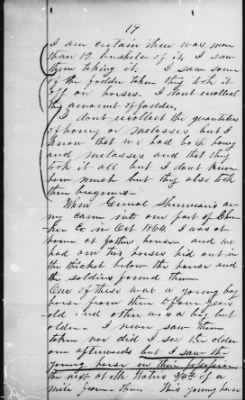 19
I am certain there was more
than 12 bushels of it, I saw
them taking it. I saw some
of the fodder taken they took it
off on horses. I dont recollect
the amount of fodder.
I dont recollect the quantities
of honey or molasses but I
know that we had both honey
and molasses and that they
took it all but I dont know
how much but they also took
the
When General Sherman's ar-
my came into our part of Che-
kee co in Oct 1864. I was at
home at fathers house and we
had our two horses hid out in
the thicket below the house and
the soldiers found them.
One of these was a young bay
horse from three to four years
old and other was a bay but
older. I never saw them
taken nor did I see the older
one afterwards but I saw the
young horse in their possession
the next at Mr 3/4th of a
mile from there. This young horse